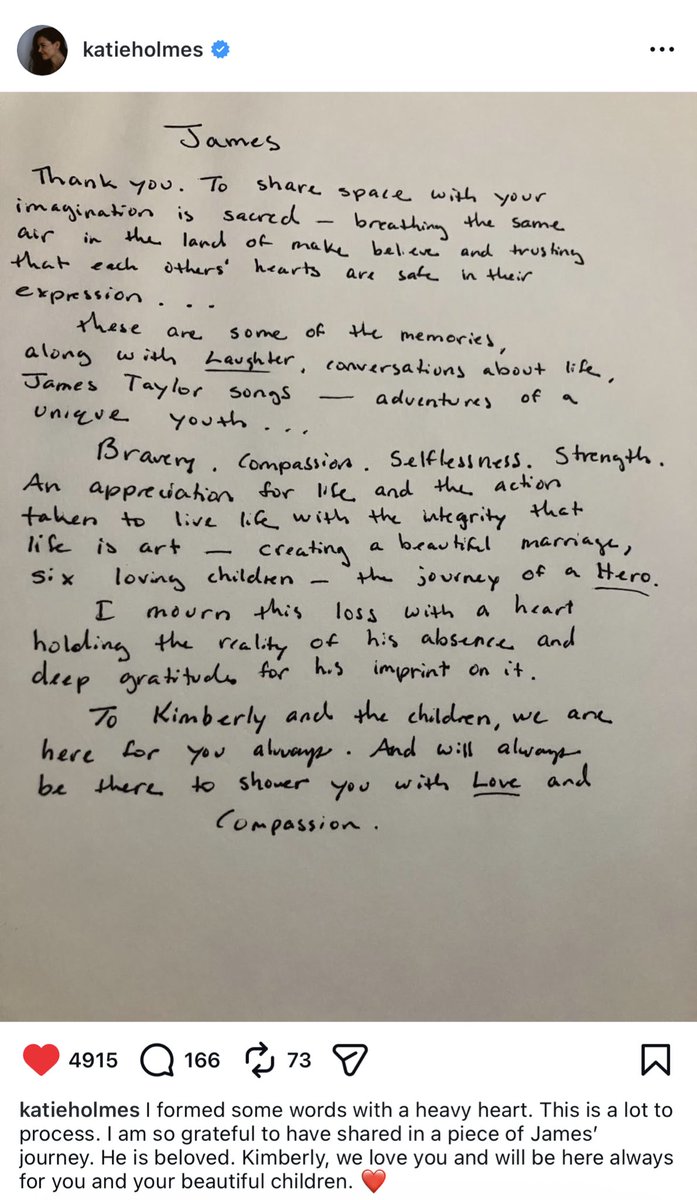 katieholmes
James
Thank you. To share space with your
imagination is sacred — breathing the same
air in the land of make believe and trusting
that each others' hearts are safe in their
expression . . .
these are some of the memories,
along with Laughter, conversations about life,
James Taylor songs — adventures of a
unique youth . . .
Bravery. Compassion. Selflessness. Strength.
An appreciation for life and the action
taken to live life with the integrity that
life is art — creating a beautiful marriage,
six loving children — the journey of a Hero.
I mourn this loss with a heart
holding the reality of his absence and
deep gratitude for his imprint on it.
To Kimberly and the children, we are
here for you always. And will always
be there to shower you with Love and
Compassion.
4915 166 73
katieholmes I formed some words with a heavy heart. This is a lot to
process. I am so grateful to have shared in a piece of James’
journey. He is beloved. Kimberly, we love you and will be here always
for you and your beautiful children. ❤️